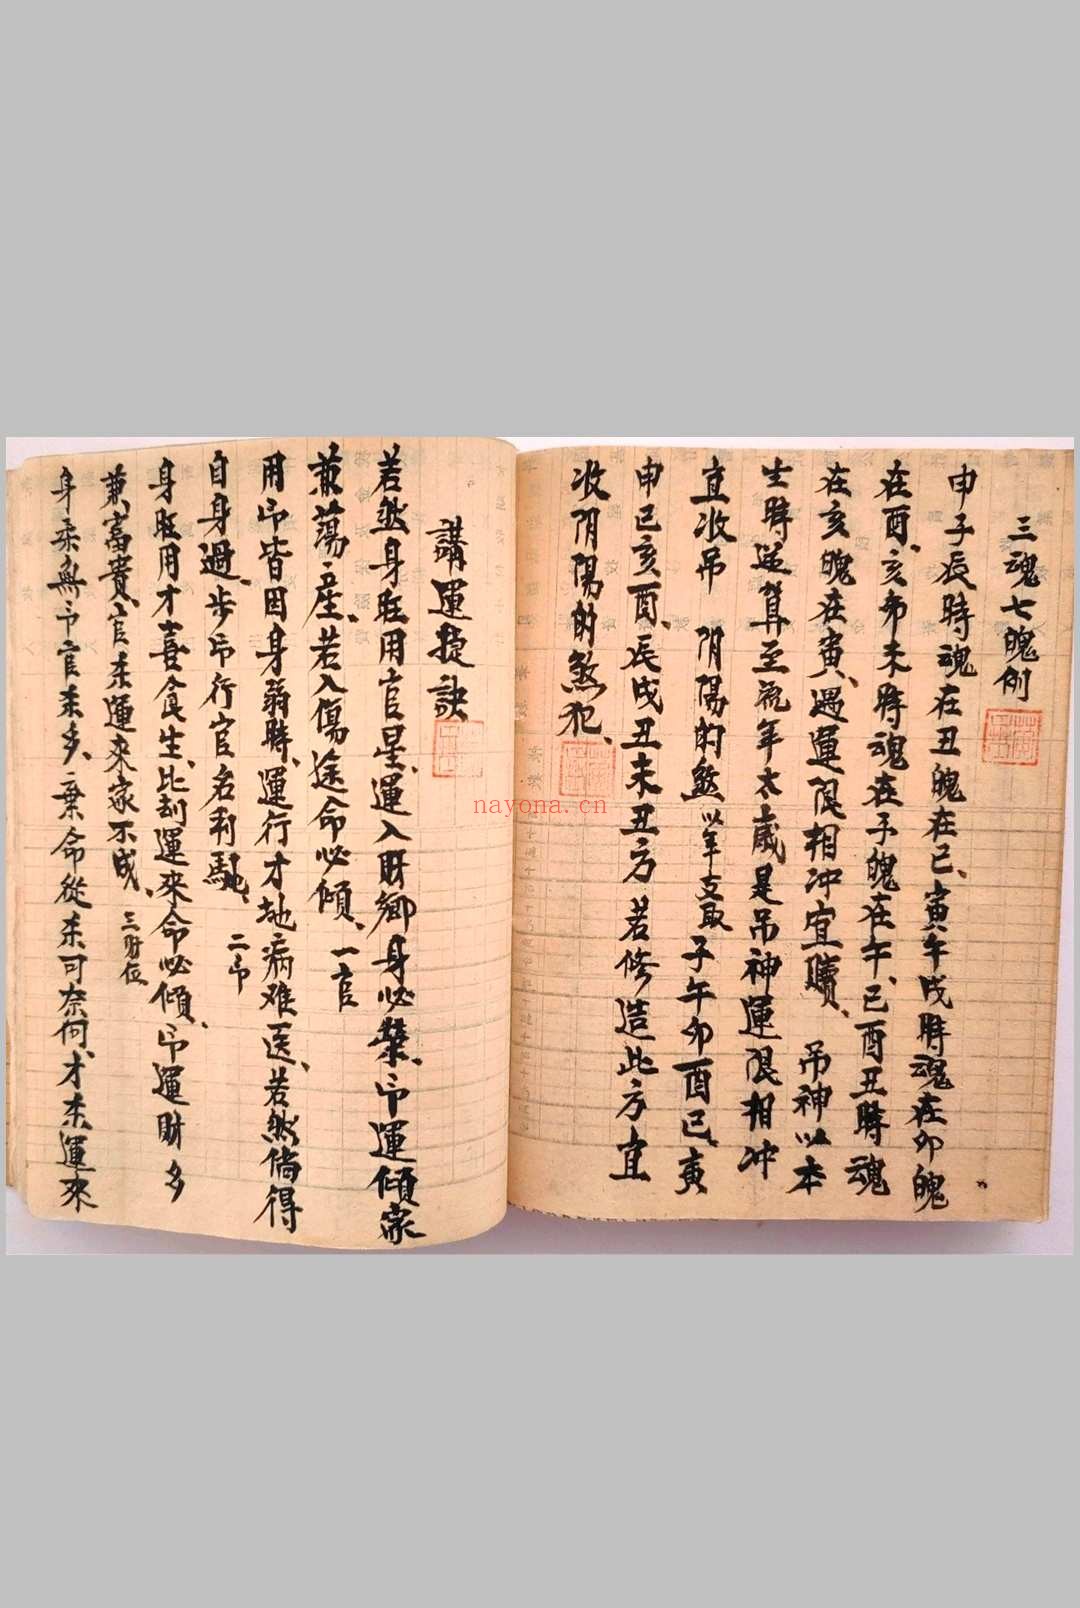 三魂七魄例
申子辰時魂在丑魄在巳、寅午戌時魂在卯魄
在酉、亥卯未時魂在子魄在午、巳酉丑時魂
在亥魄在寅、遇運限相冲宜贖、 吊神以本
生時逆算至流年太歲是吊神運限相冲
宜收吊 阴陽的煞 以年支取 子午卯酉巳、寅
申巳亥酉、辰戌丑未丑方若修造此方宜
收阴陽的煞犯、
講運捷訣
若然身旺用官星、運入財鄉身必榮、卩運傾家
兼蕩産、若入傷途命必傾、 一官
用卩皆因身弱時、運行才地病难医、若然倘得
自身過、步卩行官名利馳、 二卩
身旺用才喜食生、比刦運來命必傾、卩運財多
兼富貴、官杀運來家不成、 三財位
身柔無卩官杀多、棄命從杀可奈何、才杀運來
nayona.cn